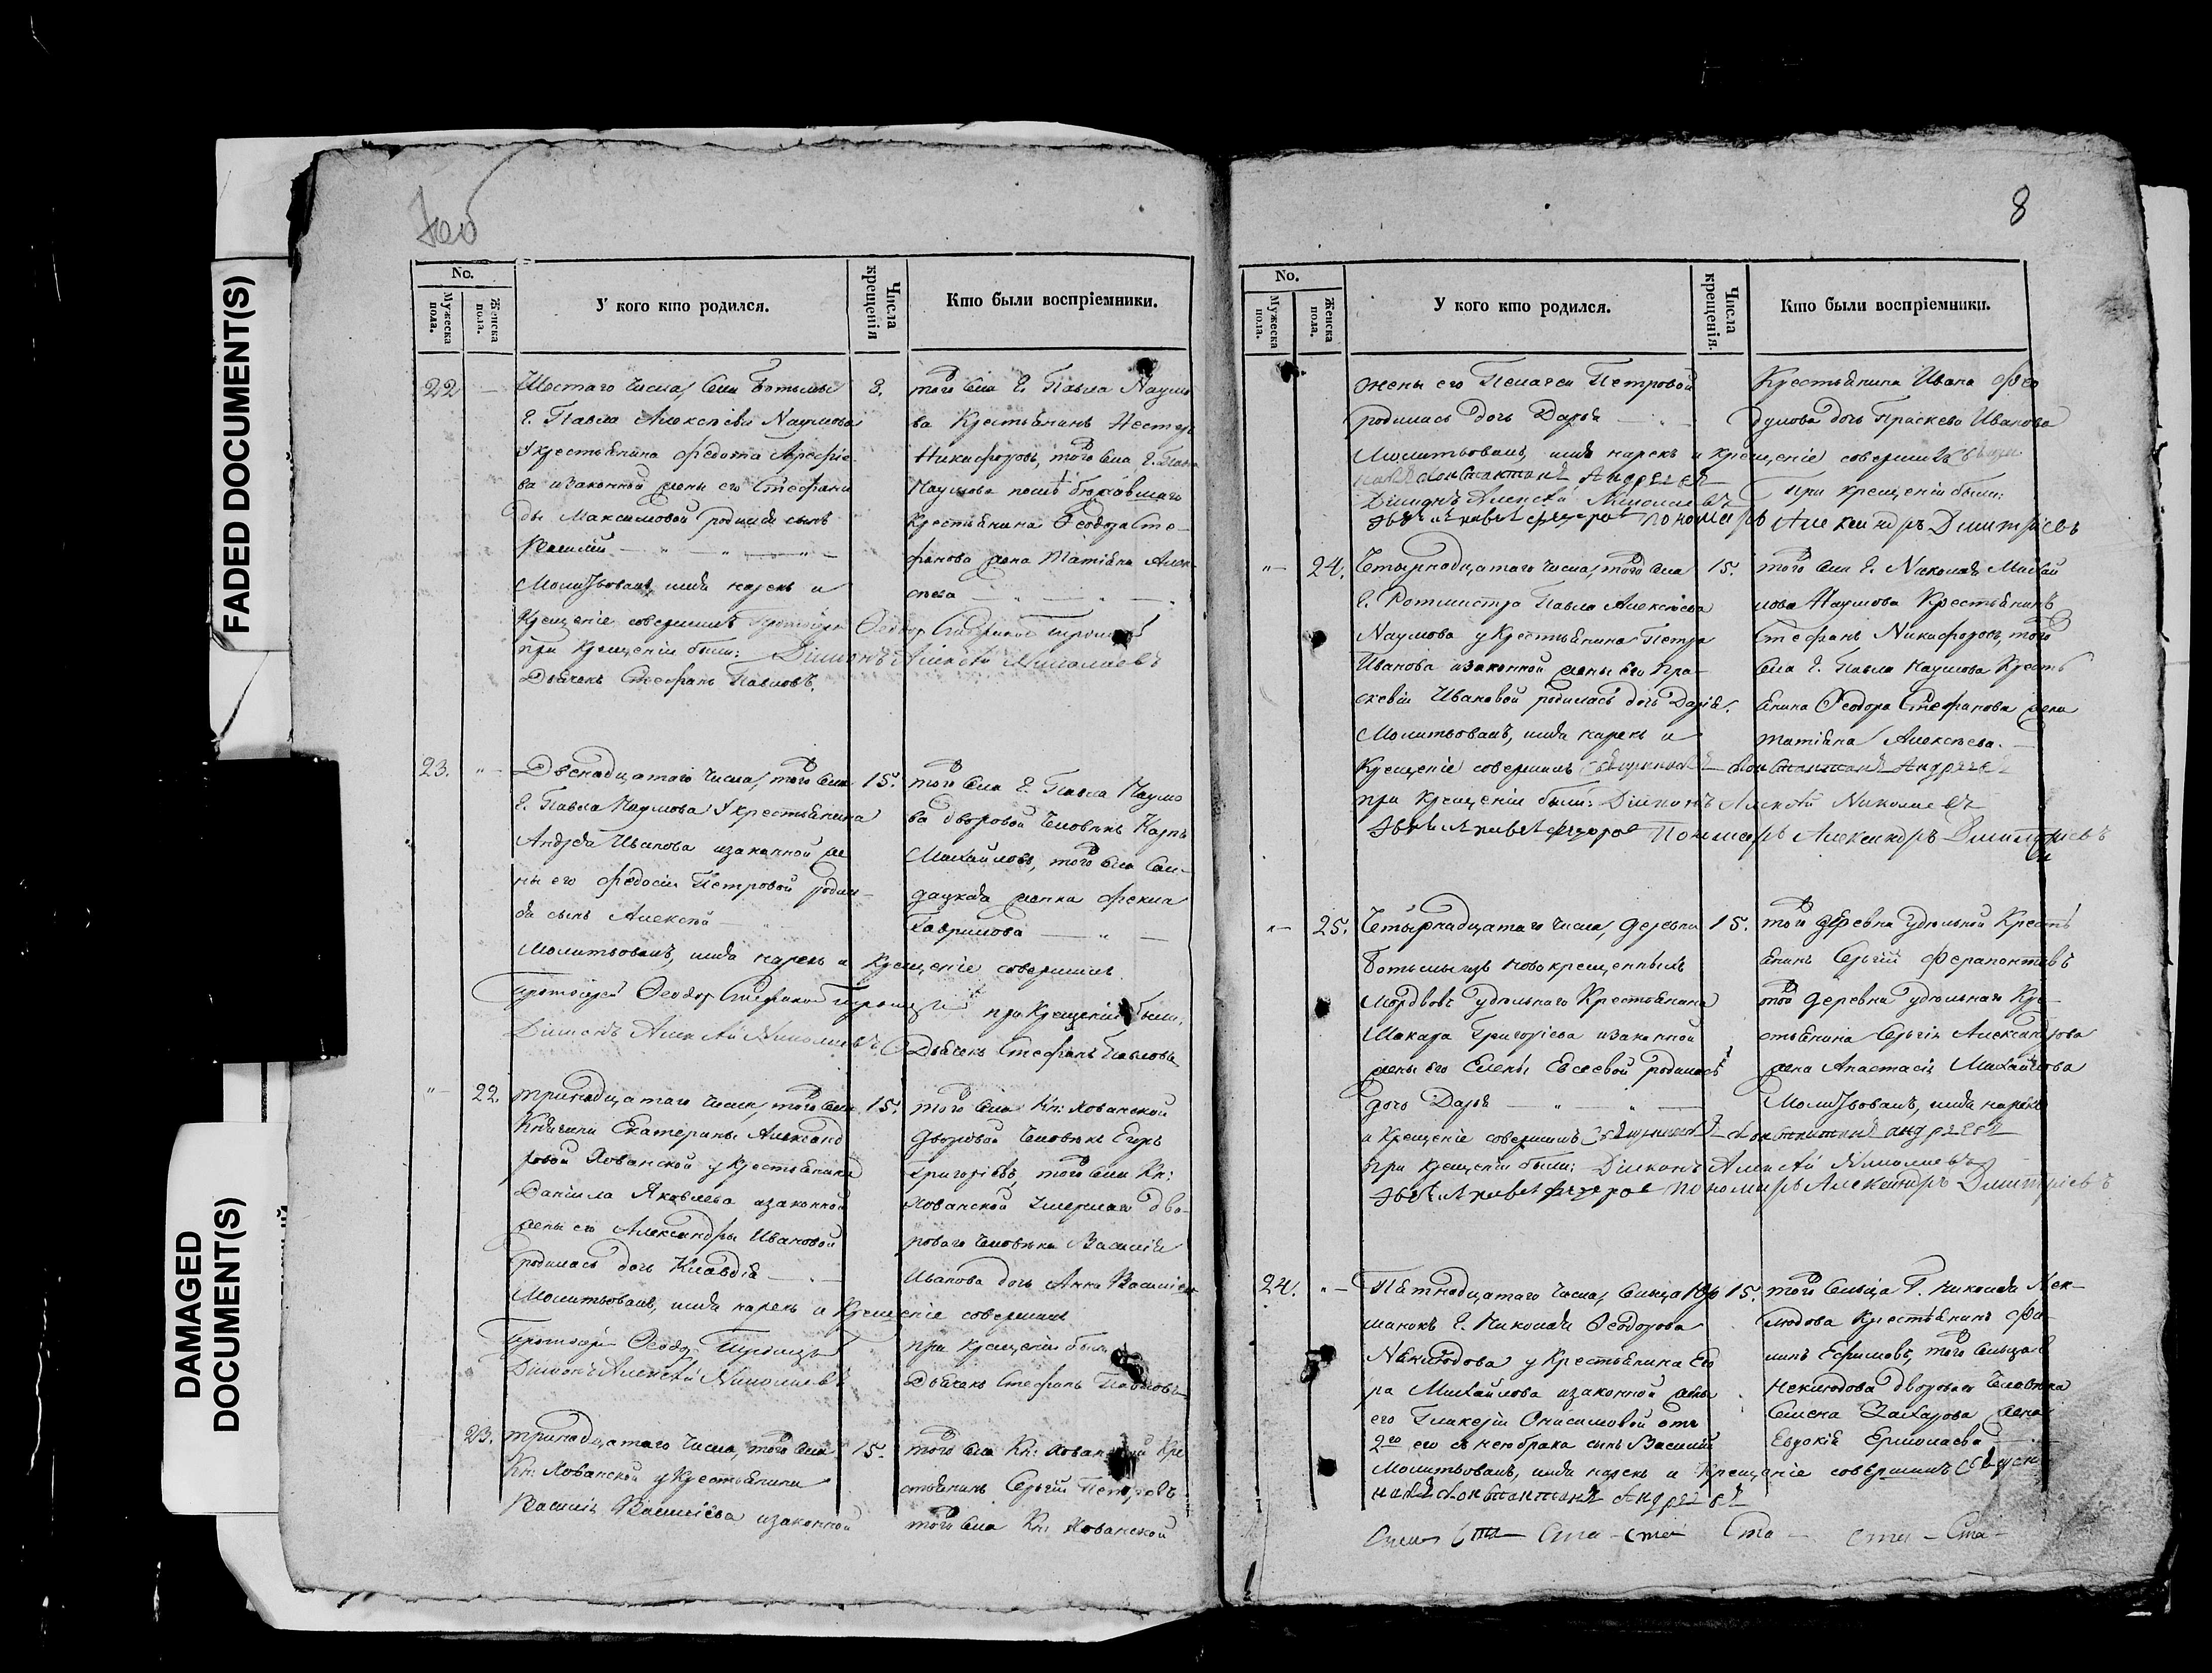 FADED DOCUMENT(S)
DAMAGED
DOCUMENT(S)
No.
Мужеска пола.
Женска пола.
У кого кто родился.
Числа крещенія
Кто были воспріемники.
22
Шестаго числа, села Ботьмы
Г. Павла Алексѣева Наумова
У крестьянина Федота Арефье
ва и законной жены его Стефани
ды Максимовой родился сынъ
Василій
Молитвовалъ, имя нарекъ и
Крещеніе совершилъ Протоіерей Ѳеодор
при Крещеніи были: Діаконъ Алексѣй Николаевъ
Дьячекъ Стефанъ Павловъ.
8.
того села Г. Павла Наумо
ва Крестьянинъ Нестер
Никифоровъ, того села Г. Павла
Наумова
Крестьянина Ѳеодора Сте-
фанова жена Татіана Алек-
сѣева
23.
Двенадцатаго числа, того села
Г. Павла Наумова У крестьянина
Андрея Иванова и законной же
ны его Федосьи Петровой родил-
ся сынъ Алексѣй
Молитвовалъ, имя нарекъ и Крещеніе совершилъ
Протоіерей Ѳеодор при Крещеніи были:
Діаконъ Алексѣй Николаевъ Дьячекъ Стефанъ Павловъ
15.
того села Г. Павла Наумо
ва дворовой человѣкъ Карпъ
Михайловъ, того села Сол-
дацкая женка Фекла
Гаврилова
22.
Тринадцатаго числа, того села
Княгини Екатерины Александ
ровой Хованской у крестьянина
Даніила Яковлева и законной
жены его Александры Ивановой
родилась дочь Клавдія
Молитвовалъ, имя нарекъ и Крещеніе совершилъ
Протоіерей Ѳеодор
Діаконъ Алексѣй Николаевъ
15.
того села Кн: Хованской
Дворовой человѣкъ Егоръ
Григорьевъ, того села Кн:
Хованской умершаго дво-
роваго человѣка Василія
Иванова дочь Анна Васильева
при Крещеніи были
Дьячекъ Стефанъ Павловъ
23.
Тринадцатаго числа, того села
Кн: Хованской у Крестьянина
Василія Васильева и законной
15.
того села Кн: Хованской Кре
стьянинъ Сергѣй Петровъ
того села Кн: Хованской
8
No.
Мужеска пола.
Женска пола.
У кого кто родился.
Числа крещенія.
Кто были воспріемники.
жены его Пелагеи Петровой
родилась дочь Дарья
Молитвовалъ, имя нарекъ и Крещеніе совершилъ Священ
никъ Константинъ Андреевъ
Діаконъ Алексѣй Николаевъ при крещеніи были:
пономарь Александръ Димитріевъ
Крестьянина Ивана Фео
дулова дочь Праскева Иванова
24.
Четырнадцатаго числа, того села
Г. Ротмистра Павла Алексѣева
Наумова у Крестьянина Петра
Иванова и законной жены его Пра-
сковіи Ивановой родилась дочь Дарія.
Молитвовалъ, имя нарекъ и
Крещеніе совершилъ Священникъ Константинъ Андреевъ
при Крещеніи были: Діаконъ Алексѣй Николаевъ
Пономарь Александръ Димитріевъ
15.
того села Г. Николая Михай
лова Наумова Крестьянинъ
Стефанъ Никифоровъ, того
села Г. Павла Наумова Кресть
янина Ѳеодора Стефанова жена
Татіана Алексѣева.
25.
Четырнадцатаго числа, Деревни
Ботьмы изъ новокрещенныхъ
Мордвовъ удѣльнаго Крестьянина
Макара Григорьева и законной
жены его Елены Евсеевой родилась
дочь Дарья
и Крещеніе совершилъ Священникъ Константинъ Андреевъ
при Крещеніи были: Діаконъ Алексѣй Николаевъ
Пономарь Александръ Димитріевъ
15.
той деревни удѣльной Кресть
янинъ Сергѣй Ферапонтовъ
той Деревни удѣльнаго Кре-
стьянина Сергѣя Александрова
жена Анастасія Михайлова
Молитвовалъ, имя нарекъ
24.
Пятнадцатаго числа, Сельца
Г. Николая Ѳеодорова
Неклюдова у Крестьянина Его
ра Михайлова и законной жены
его Гликеріи Онисимовой отъ
2го его съ нею брака сынъ Василій
Молитвовалъ, имя нарекъ и Крещеніе совершилъ Священ
никъ Константинъ Андреевъ
15.
того Сельца Г. Николая Нек-
людова Крестьянинъ Фи-
липъ Ефимовъ, того Сельца Г.
Неклюдова двороваго человѣка
Семена Захарова жена
Евдокія Ермолаева